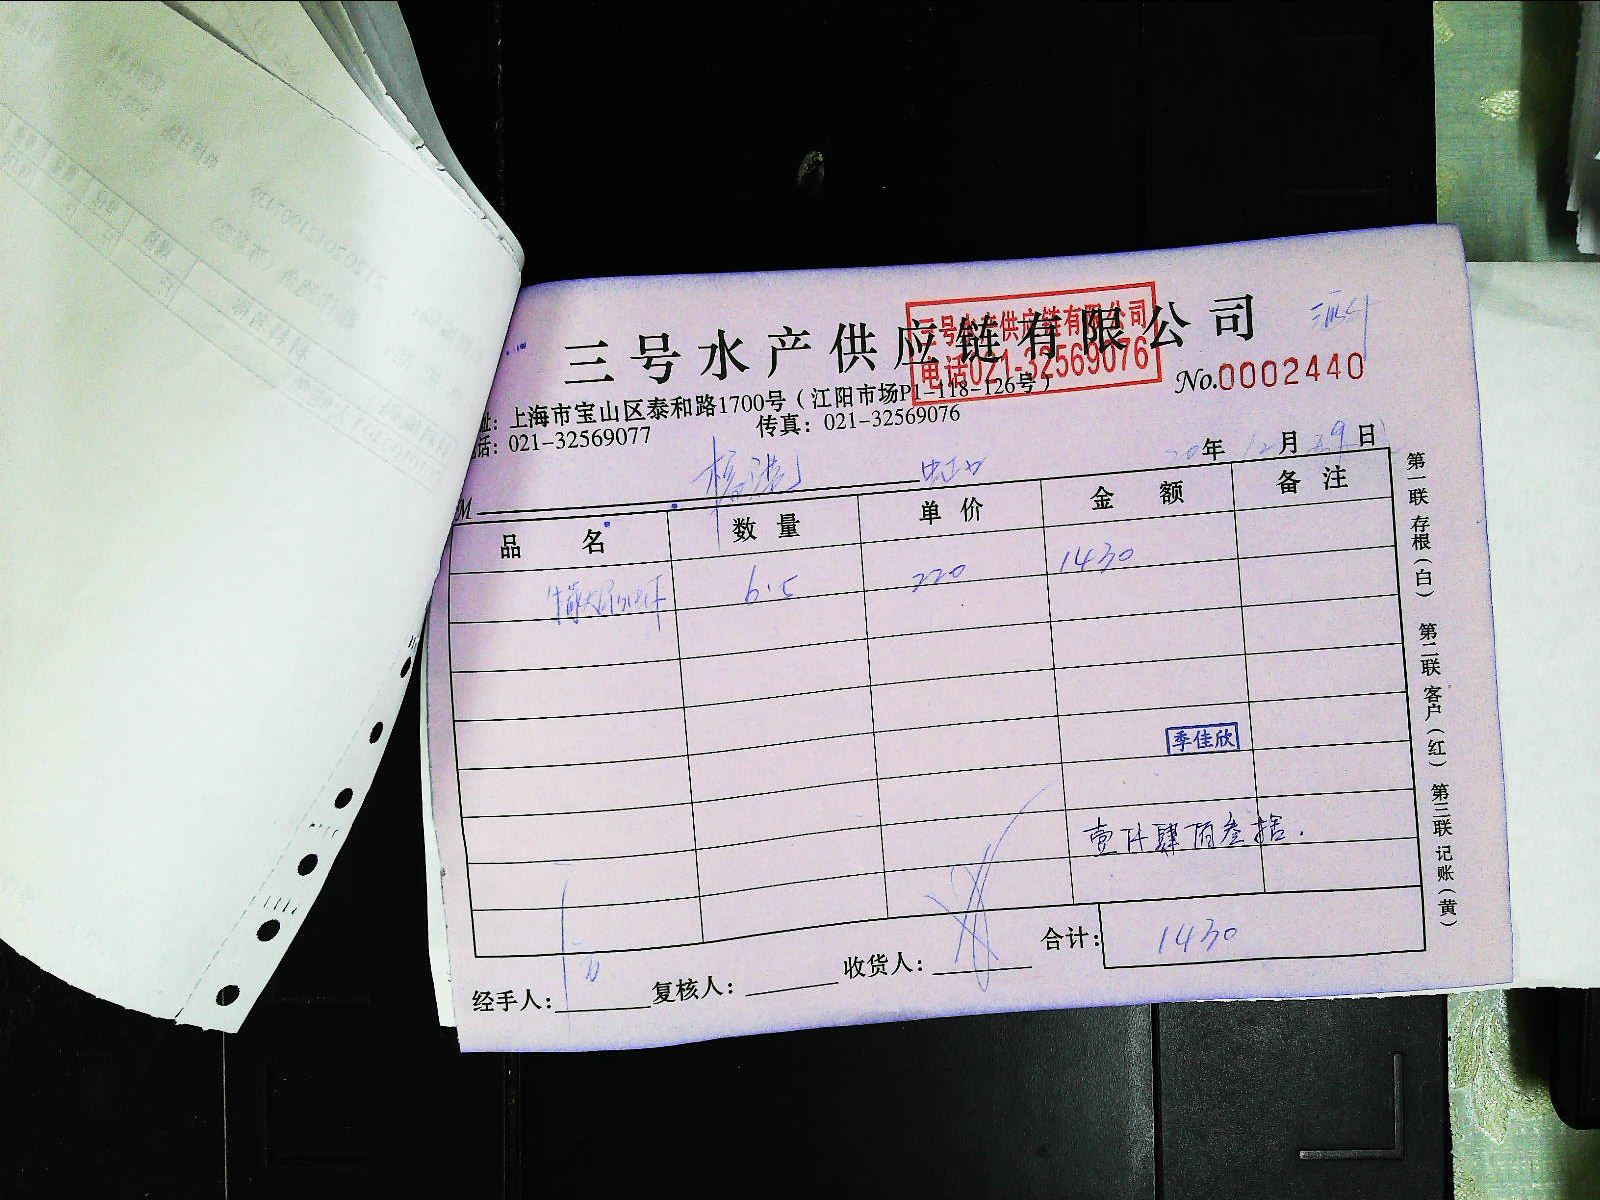 三号水产供应链有限公司
三号水产供应链有限公司
电话021-32569076
No.0002440
址：上海市宝山区泰和路1700号（江阳市场P1-118-126号）
话：021-32569077 传真：021-32569076
20年12月 9日
M
品 名 数 量 单 价 金 额 备 注
6.5 220 1430
季佳欣
壹仟肆佰叁拾.
合计： 1430
经手人： 复核人： 收货人：
第一联 存根（白） 第二联 客户（红） 第三联 记账（黄）